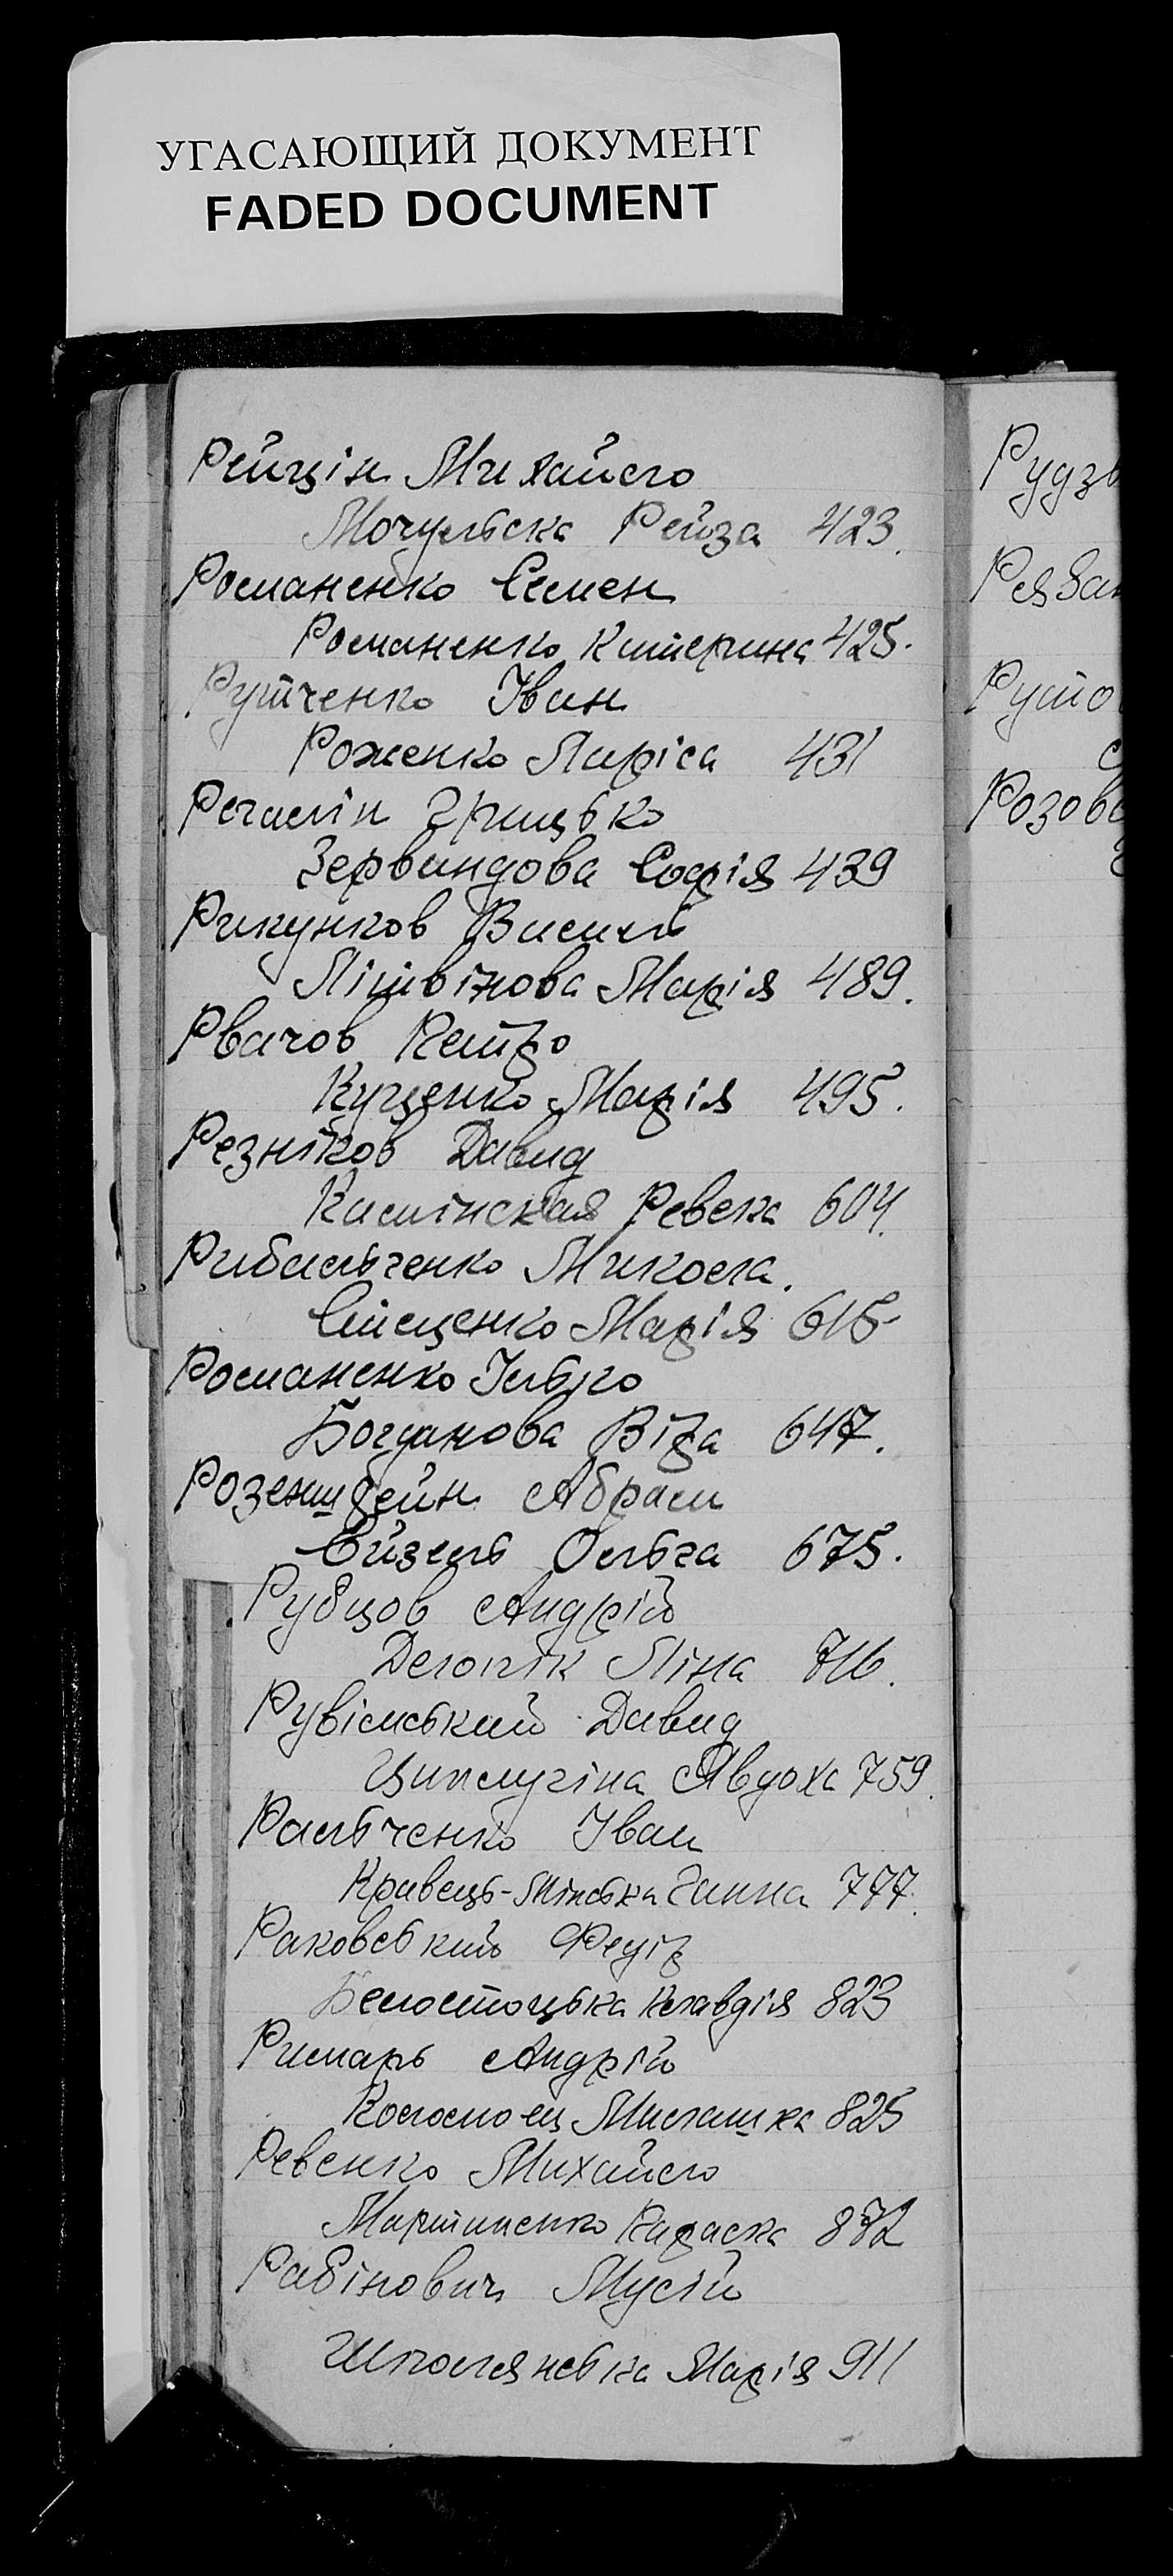 УГАСАЮЩИЙ ДОКУМЕНТ
FADED DOCUMENT
Рейцін Михайло
Мочульська Рейза 423.
Романенко Семен
Романенко Катерина 425.
Рутченко Іван
Роженко Лариса 431
Рогалін Грицько
Зервандова Софія 439
Рикунков Василь
Літвінова Марія 489.
Рвачов Петро
Куценко Марія 495.
Резніков Давид
Камінская Ревека 604.
Рибальченко Микола.
Стеценко Марія 615
Романенко Ілько
Богданова Віра 647.
Розенштейн Абрам
Ейзель Ольга 675.
Рубцов Андрій
Ліна 716.
Рувімський Давид
Явдоха 759.
Ральченко Іван
Кравець-Мінська Ганна 777.
Раковський Федір
Белостоцька Клавдія 823
Римарь Андрій
Коломоец Милашка 825
Ревенко Михайло
Мартиненко Параска 872
Рабінович Мусій
Шполянська Марія 911
Рудзь
Руто
Розов